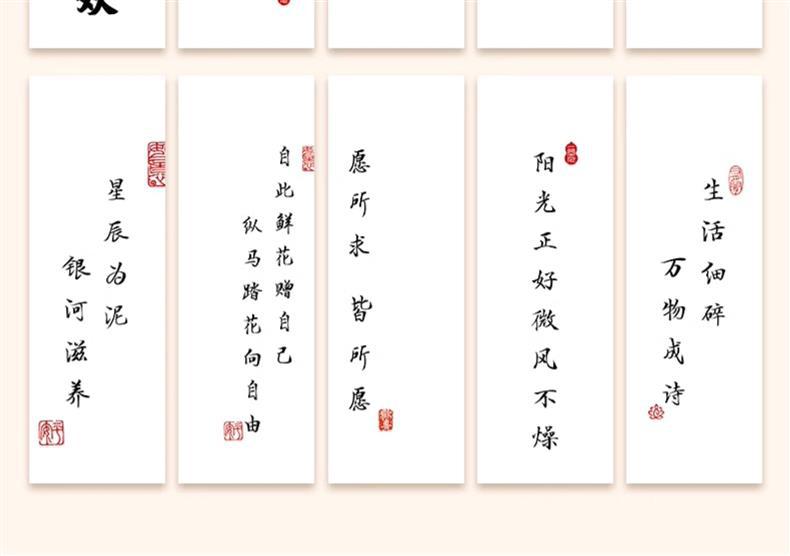 欢
星辰为泥
银河滋养
自此鲜花赠自己
纵马踏花向自由
愿所求 皆所愿
阳光正好微风不燥
生活细碎
万物成诗